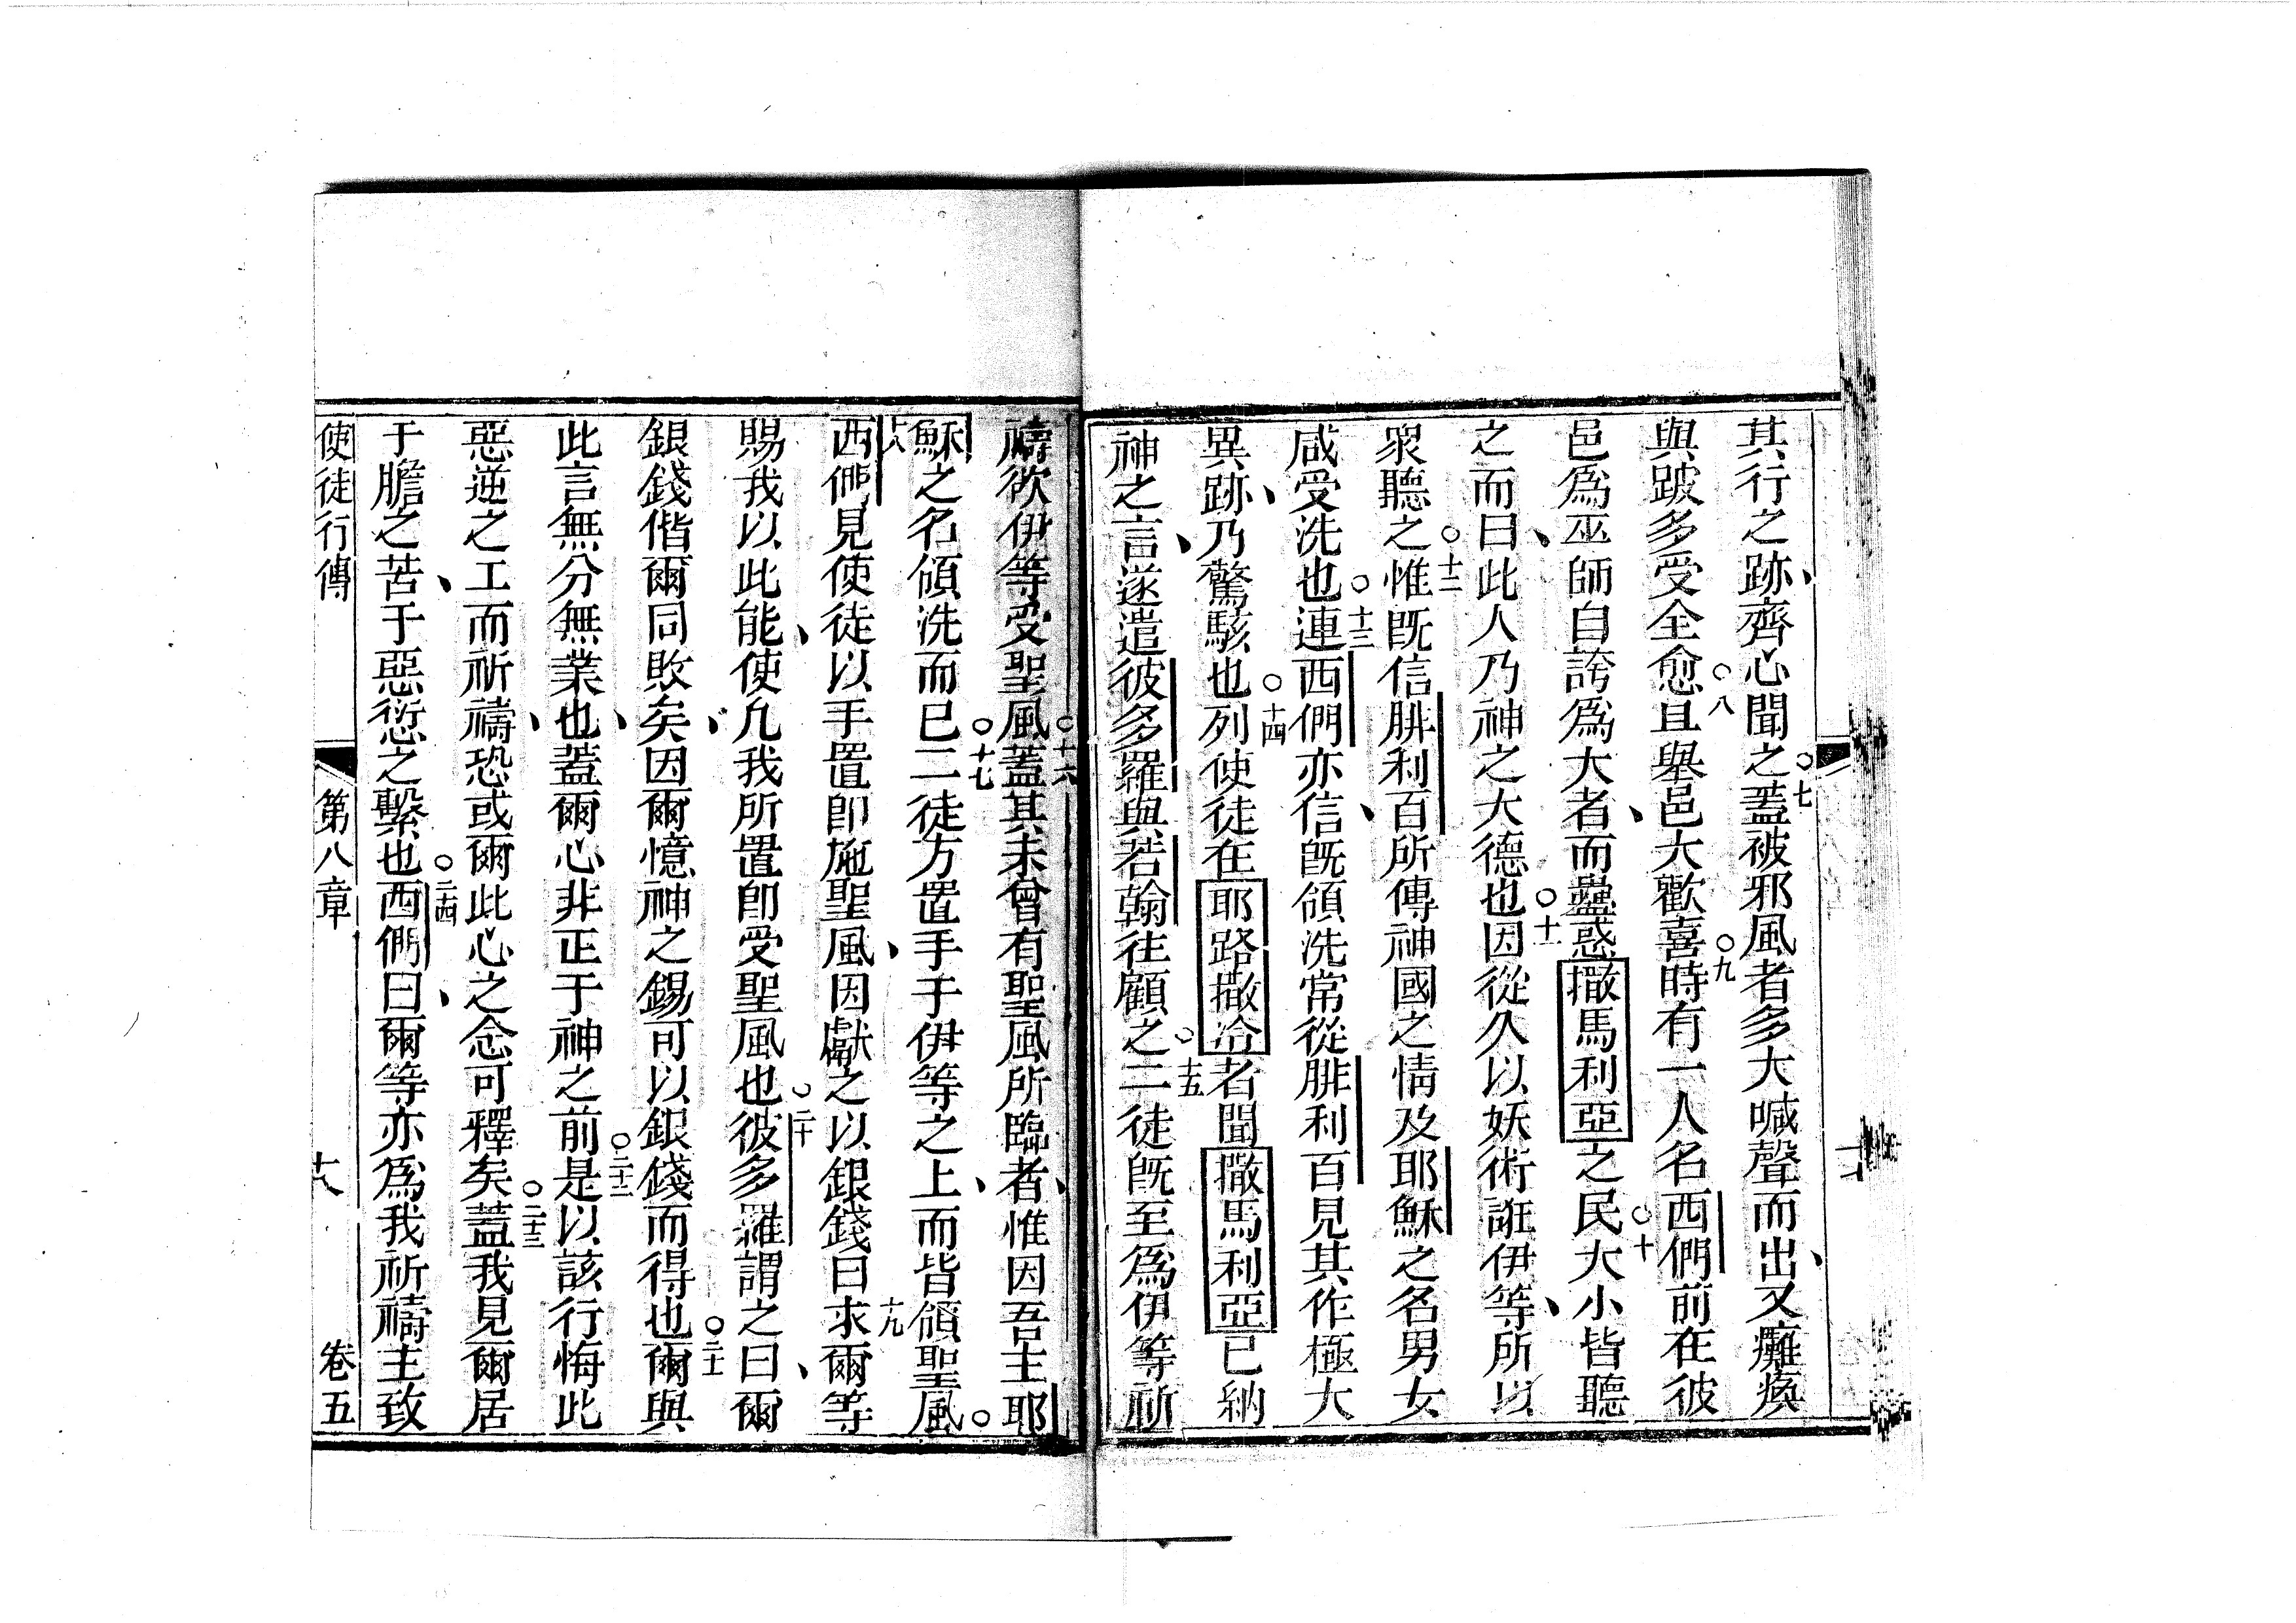 其行之跡、齊心聞之○七蓋被邪風者多大喊聲而出、又癱瘓
與跛多受全愈○八且舉邑大歡喜○九時有一人名西們前在彼
邑為巫師自誇為大者、而蠱惑撒馬利亞之民○十大小皆聽
之而曰、此人乃神之大德也○十一因從久以妖術誑伊等、所以
衆聽之○十二惟既信腓利百所傳神國之情及耶穌之名男女
咸受洗也○十三連西們亦信、既領洗常從腓利百見其作極大
異跡、乃驚駭也○十四列使徒在耶路撒冷者聞撒馬利亞已納
神之言、遂遣彼多羅與若翰往顧之○十五二徒既至為伊等祈
禱欲伊等受聖風○十六蓋其未曾有聖風所臨者、惟因吾主耶
穌之名領洗而已○十七二徒方置手于伊等之上、而皆領聖風○
十八西們見使徒以手置即施聖風、因獻之以銀錢曰十九求爾等
賜我以此能、使凡我所置即受聖風也○二十彼多羅謂之曰、爾
銀錢偕爾同敗矣、因爾憶神之錫可以銀錢而得也○二十一爾與
此言無分無業也、蓋爾心非正于神之前○二十二是以該行悔此
惡逆之工而祈禱、恐或爾此心之念可釋矣○二十三蓋我見爾居
于膽之苦、于惡愆之繫也○二十四西們曰、爾等亦為我祈禱主致
使徒行傳 第八章 十八 卷五